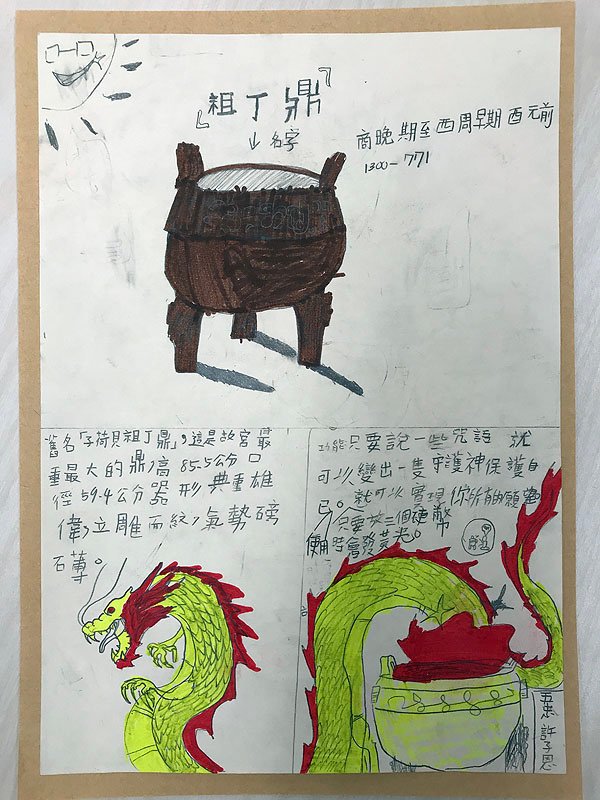 『祖丁鼎』
↓名字
商晚期至西周早期 酉元前
1300-771
舊名「子荷貝祖丁鼎」,這是故宮最
重最大的鼎,高 85.5公分 口
徑 59.4公分 器 形 典重雄
偉,立雕而紋,氣勢磅
石薄。
功能只要說一些咒語 就
可以變出一隻守護神保護自
己。就可以實現你所有的願望
只要放三個硬幣
使用時會發荧光。
五忠 許子恩